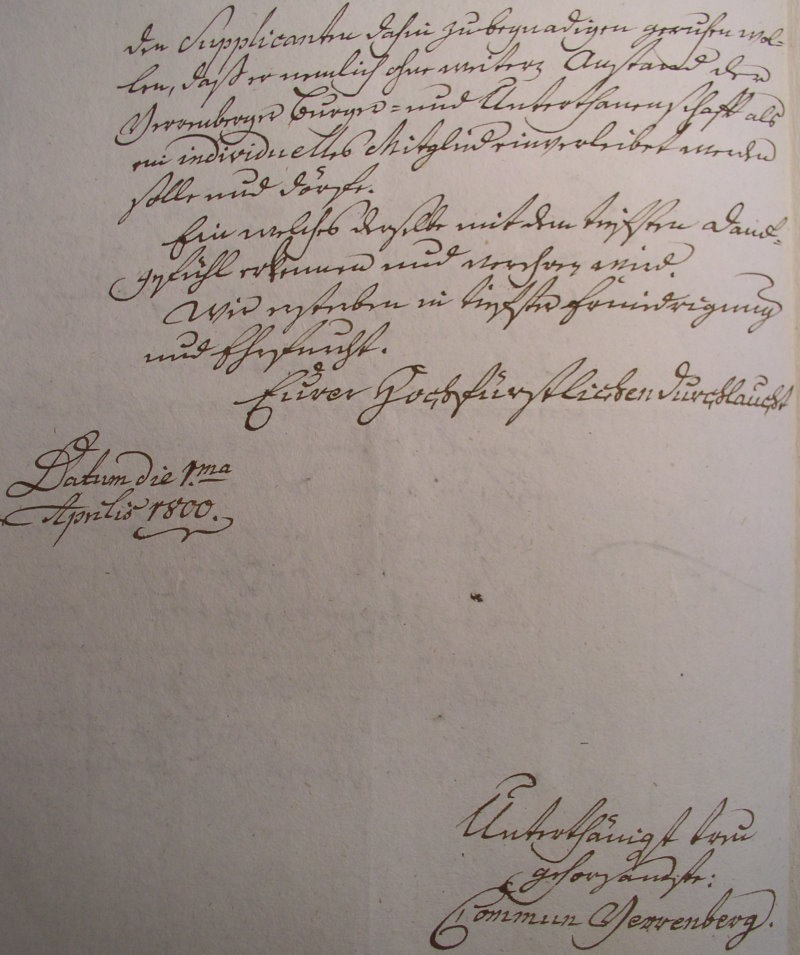 den Supplicanten dahin zubegnadigen geruhen wol=
len, daß er nemlich ohne weitern Anstand der
Verrenberger Burger= und Unterthanenschafft als
ein individuelles Mitglied einverleibet werden
solle und dörfe.
Ein welches derselbe mit dem tiefsten Danck=
gefühl erkennen und verehren wird.
Wir ersterben in tiefster Erniedrigung
und Ehrfurcht.
Eurer Hochfürstlichen Durchlaucht
Datum die 1.ma
Aprilis 1800.
Unterthänigst treu
gehorsamste:
Commun Verrenberg.